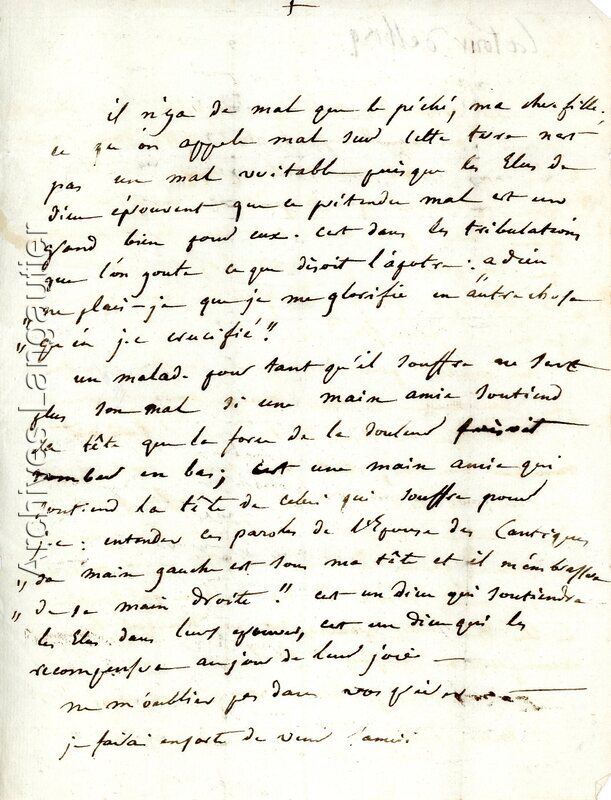 +
il n'ya de mal que le péché, ma chere fille,
ce qu'on appele mal sur cette terre nest
pas un mal veritable puisque les Elus de
dieu éprouvent que ce prétendu mal est un
grand bien pour eux. cest dans les tribulations
que l'on goute ce que disoit l'apotre: a dieu
" ne plais-je que je me glorifie en autre chose
" qu'en j.c crucifié"
un malade pour tant qu'il souffre ne sent
plus son mal si une main amie soutient
la tête que la force de la douleur faisoit
tomber en bas; cest une main amie qui
soutiend la tête de celui qui souffre pour
j.c: entender ces paroles de l'Epouse des Cantiques
" sa main gauche est sous ma tête et il m'embrassera
" de sa main droite" cest un dieu qui soutiendra
les Elus dans leurs epreuves, cest un dieu qui les
recompensera au jour de leur joie —
ne m'oublier pas dans vos
je fairai ensorte de venir
Archives Langautier